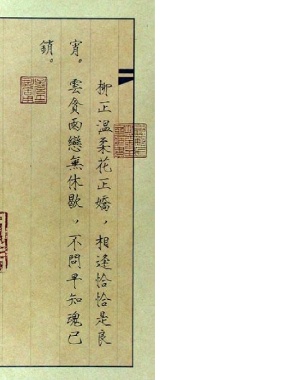 柳正温柔花正嬌，相逢恰恰是良
宵。雲貪雨戀無休歇，不問早知魂已
鎖。